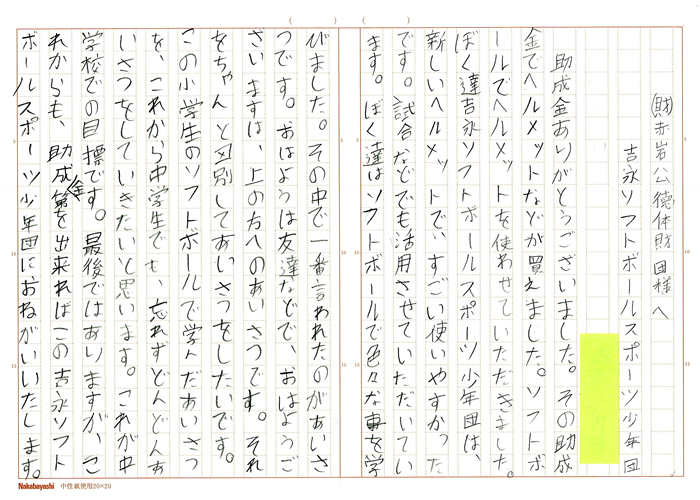 (財)赤岩公徳体財団様へ
吉永ソフトボールスポーツ少年団
助成金ありがとうございました。その助成
金でヘルメットなどが買えました。ソフトボ
ールでヘルメットを使わせていただきました。
ぼく達吉永ソフトボールスポーツ少年団は、
新しいヘルメットで、すごい使いやすかった
です。試合などでも活用させていただいてい
ます。ぼく達はソフトボールで色々な事を学
びました。その中で一番言われたのがあいさ
つです。おはようは友達などで、おはようご
ざいますは、上の方へのあいさつです。それ
をちゃんと区別してあいさつをしたいです。
この小学生のソフトボールで学んだあいさつ
を、これから中学生でも、忘れずどんどんあ
いさつをしていきたいと思います。これが中
学校での目標です。最後ではありますが、こ
れからも、助成金を出来ればこの吉永ソフト
ボールスポーツ少年団におねがいいたします。
Nakabayashi 中性紙使用20×20